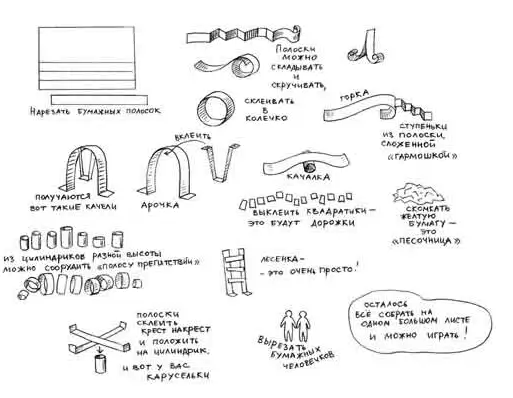 Нарезать бумажных полосок
Полоски
можно
складывать
и
скручивать,
склеивать
в
колечко
горка
ступеньки
из полоски,
сложенной
«гармошкой»
получаются
вот такие качели
вклеить
арочка
качалка
выклеить квадратики –
это будут дорожки
скомкать
желтую
бумагу –
это
«песочница»
из цилиндриков разной высоты
можно соорудить «полосу препятствий»
лесенка –
– это очень просто!
полоски
склеить
крест накрест
и положить
на цилиндрик,
и вот у вас
карусельки
вырезать
бумажных
человечков
осталось
всё собрать на
одном большом листе
и можно играть!